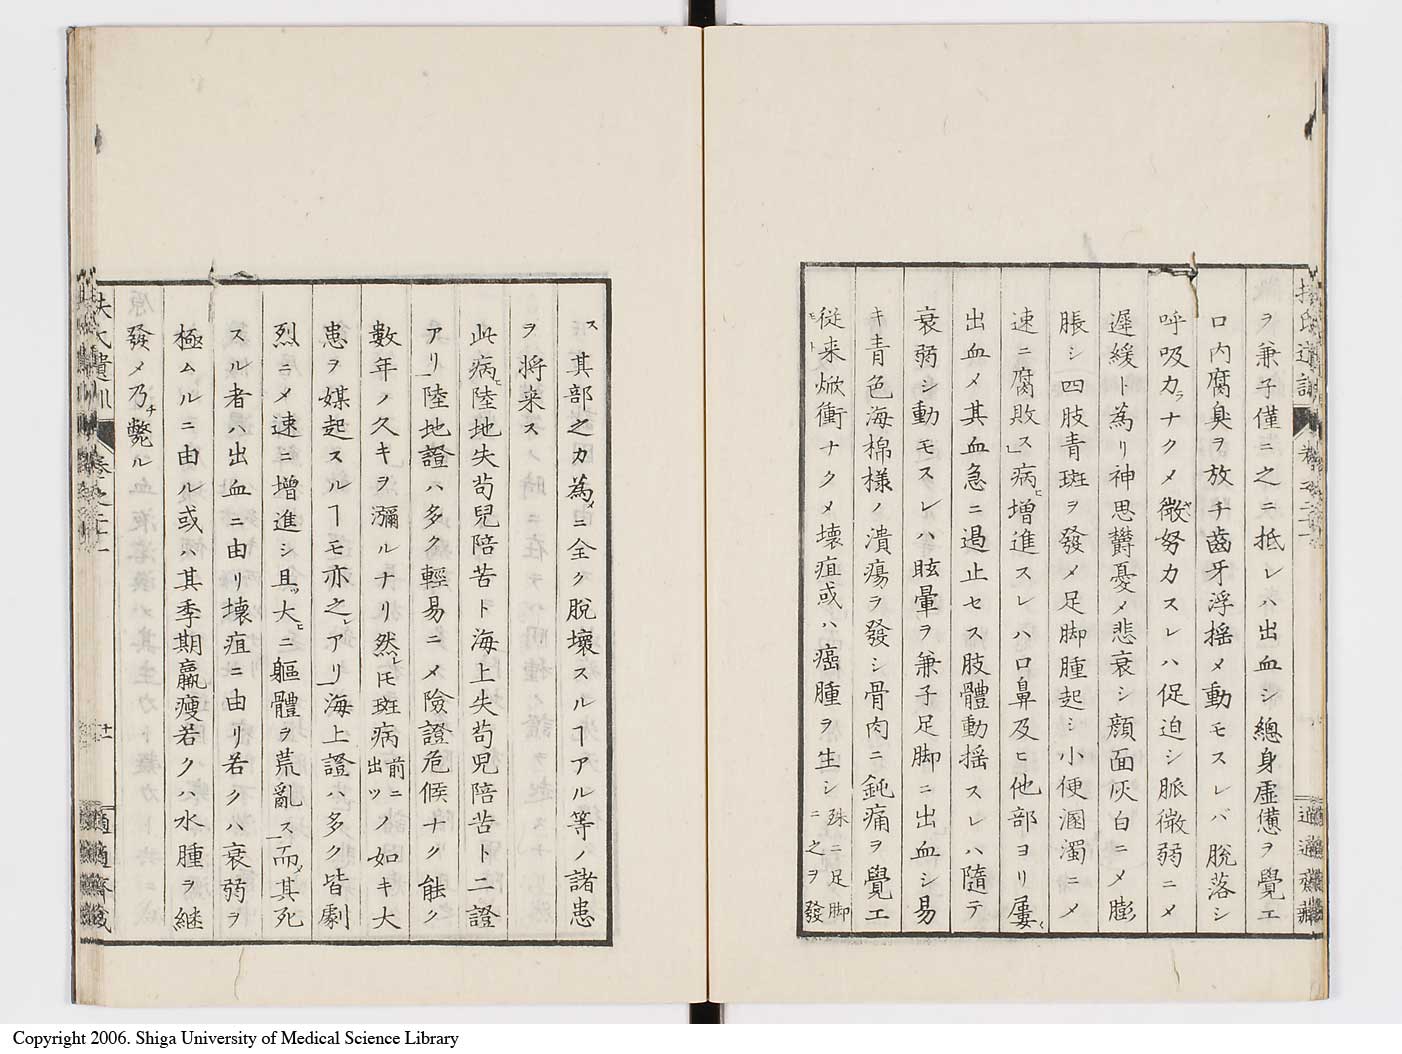 ヲ兼子僅ニ之ニ抵レハ出血シ總身虚憊ヲ覺エ
口内腐臭ヲ放チ齒牙浮揺メ動モスレバ脱落シ
呼吸カラナクメ微ゞ努力スレハ促迫シ脈微弱ニメ
遲緩ト為リ神思欝憂メ悲哀シ顔面灰白ニメ膨
脹シ四肢青斑ヲ發メ足脚腫起シ小便溷濁ニメ
速ニ腐敗ス」病ヒ増進スレハ口鼻及ヒ他部ヨリ屢〻
出血メ其血急ニ遏止セス肢體動揺スレハ隨テ
衰弱シ動モスレハ眩暈ヲ兼子足脚ニ出血シ易
キ青色海棉様ノ潰瘍ヲ發シ骨肉ニ鈍痛ヲ覺エ
従来モト焮衝ナクメ壊疽或ハ癌腫ヲ生シ殊ニ足脚ニ之ヲ發
ス其部之カ為メニ全ク脱壊スルヿアル等ノ諸患
ヲ将来ス
此病ヒ陸地失苟兒陪苦ト海上失苟兒陪苦ト二證
アリ」陸地證ハ多ク輕易ニメ險證危候ナク能ク
數年ノ久キヲ瀰ルナリ然レ𪜈斑病前ニ出ツノ如キ大
患ヲ媒起スルヿモ亦之レアリ」海上證ハ多ク皆劇
烈ニメ速ニ増進シ且ツ大ヒニ軀體ヲ荒亂ス」而メ其死
スル者ハ出血ニ由リ壊疽ニ由リ若クハ衰弱ヲ
極ムルニ由ル或ハ其季期羸瘦若クハ水腫ヲ継
發メ乃チ斃ル
扶氏遺訓
卷之二十一
適適齋藏
Copyright 2006. Shiga University of Medical Science Library